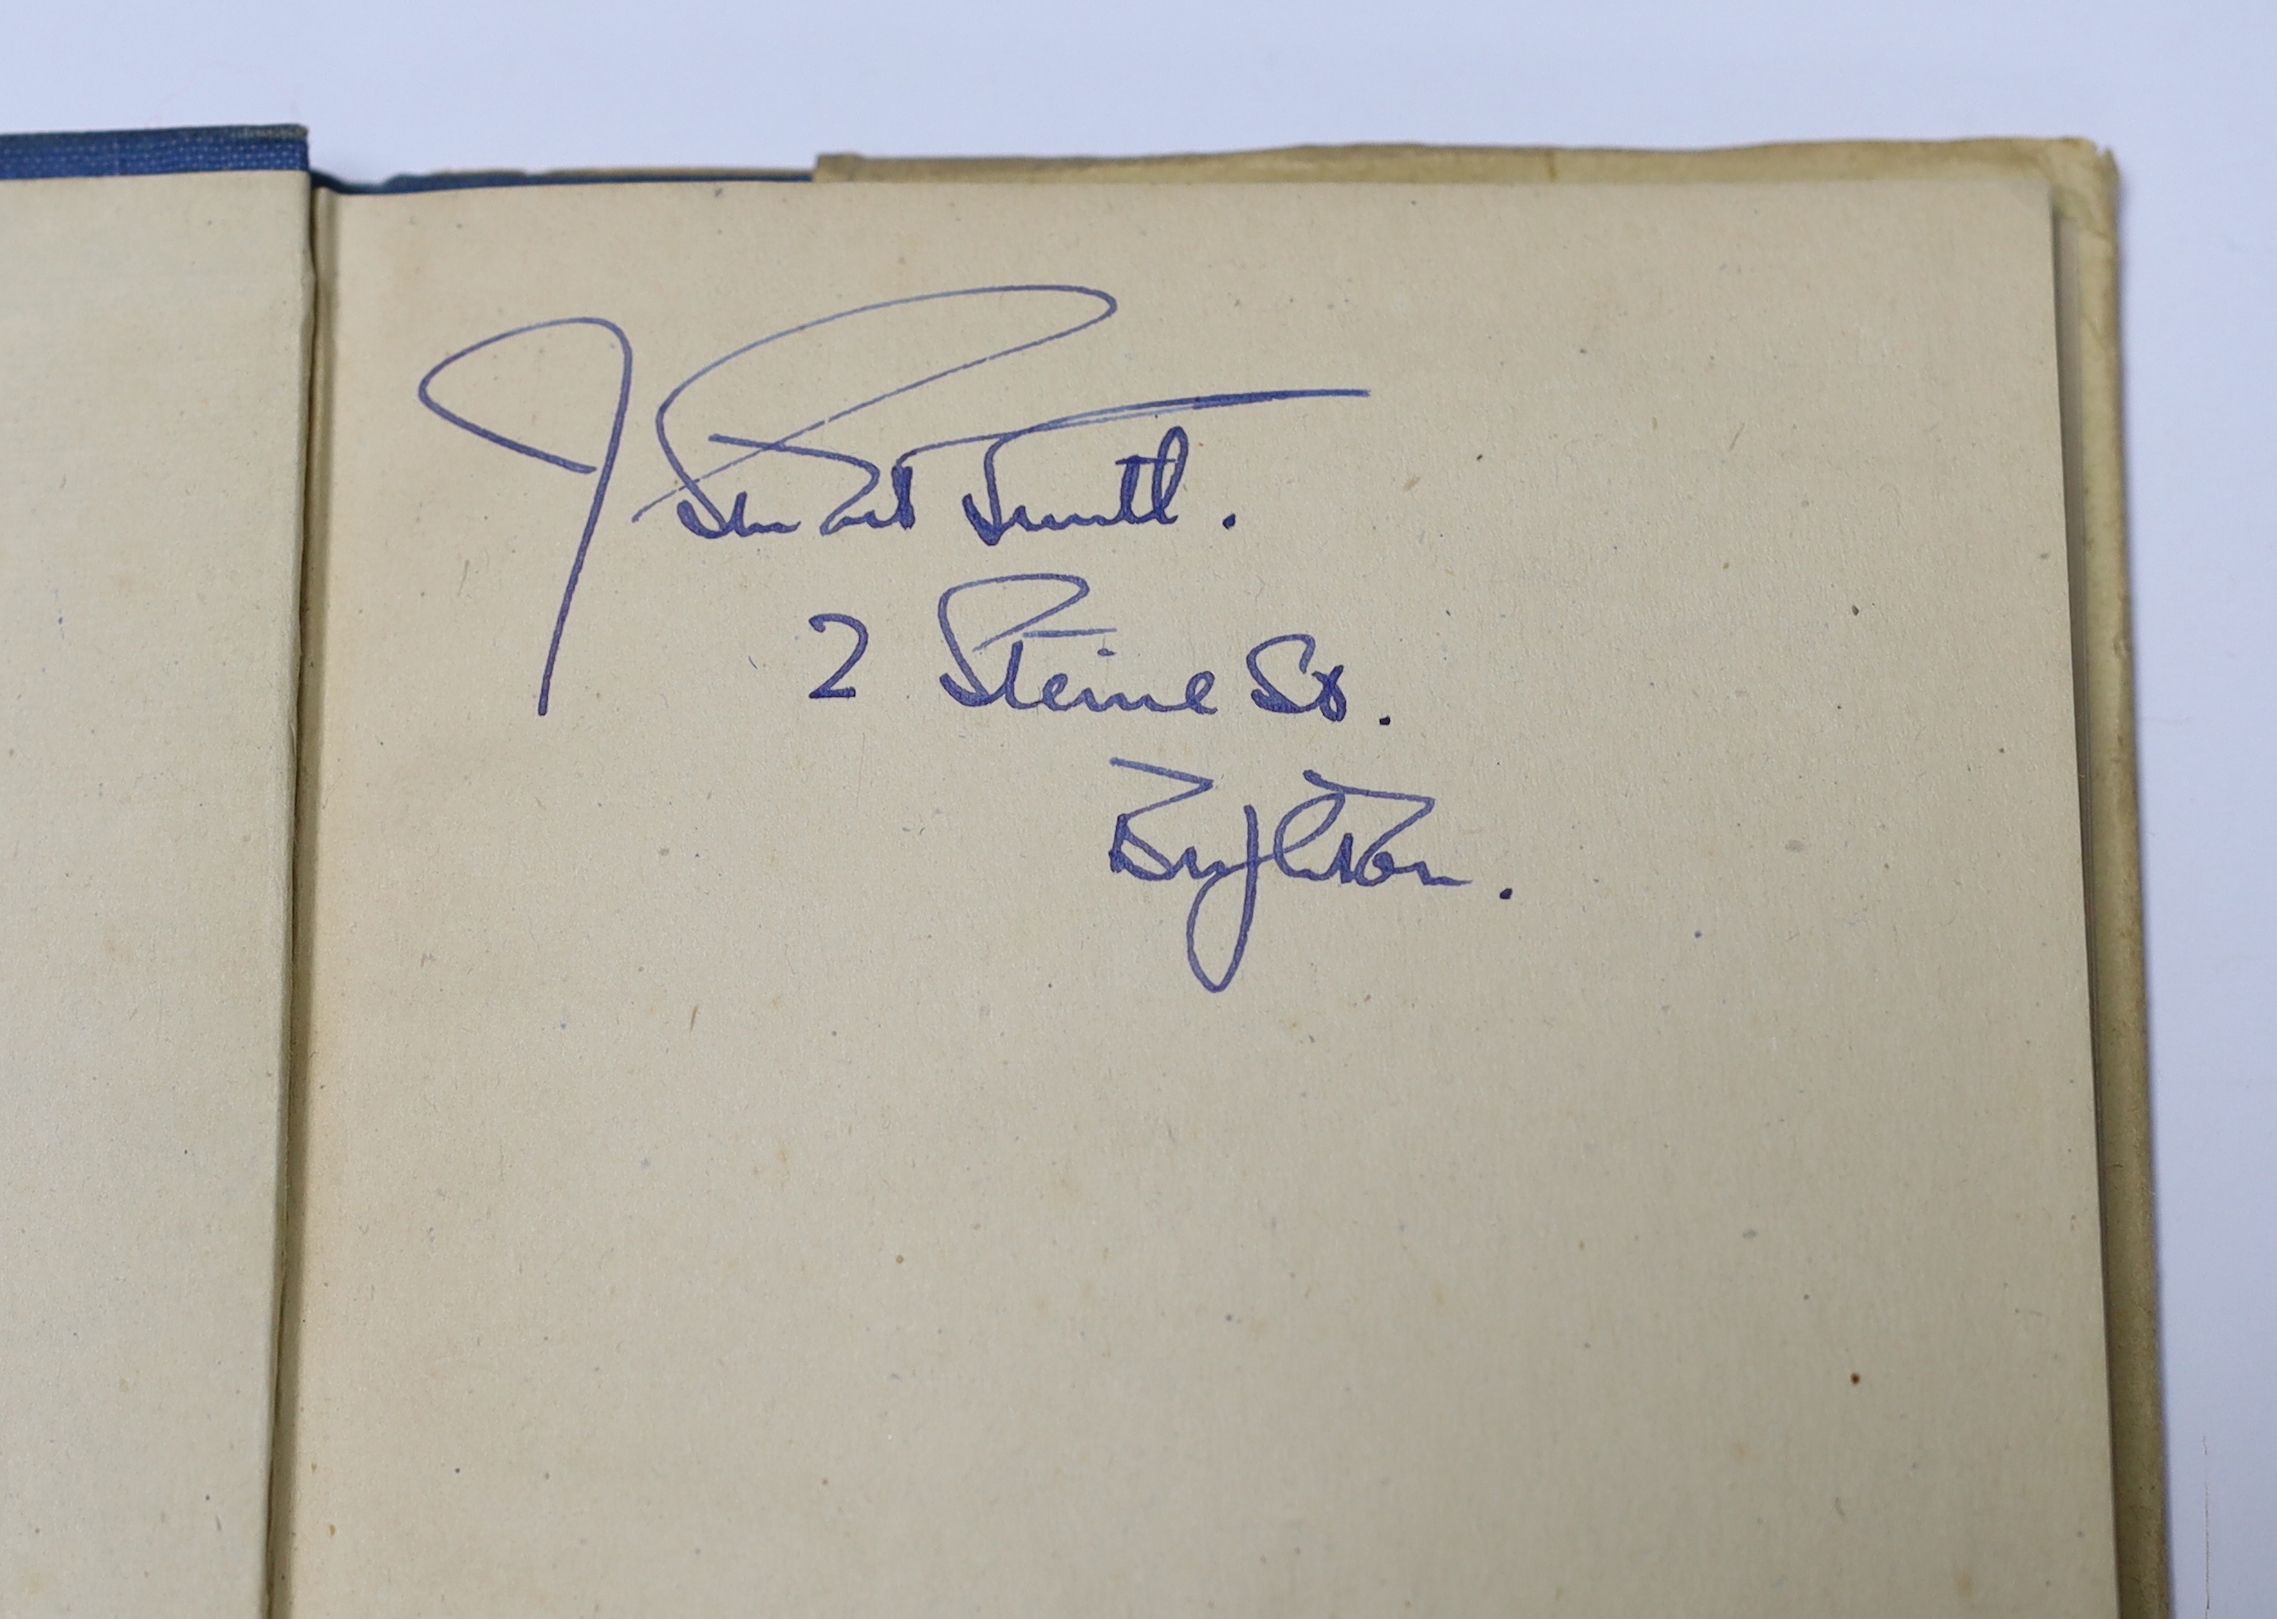 J Stuart Smith.
2 Steine St.
Brighton.